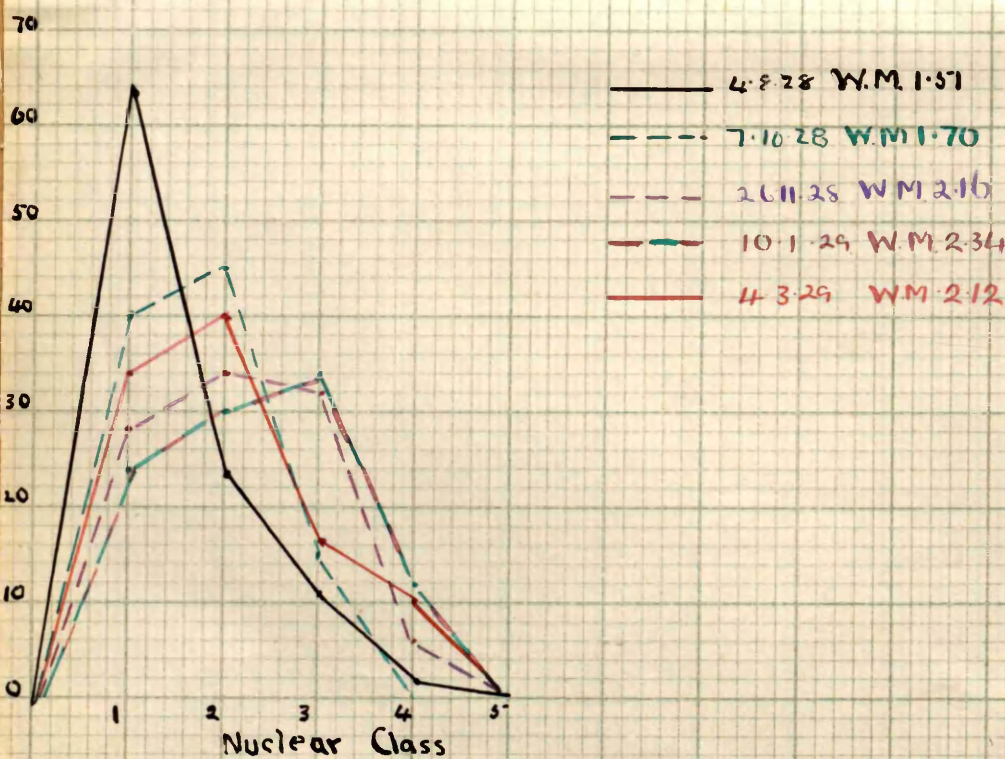 70
60
50
40
30
20
10
0
1 2 3 4 5
Nuclear Class
4.8.28 W.M. 1.51
7.10.28 W.M 1.70
26 11.28 W.M. 2.16
10.1.29 W.M. 2.34
4.3.29 W.M. 2.12